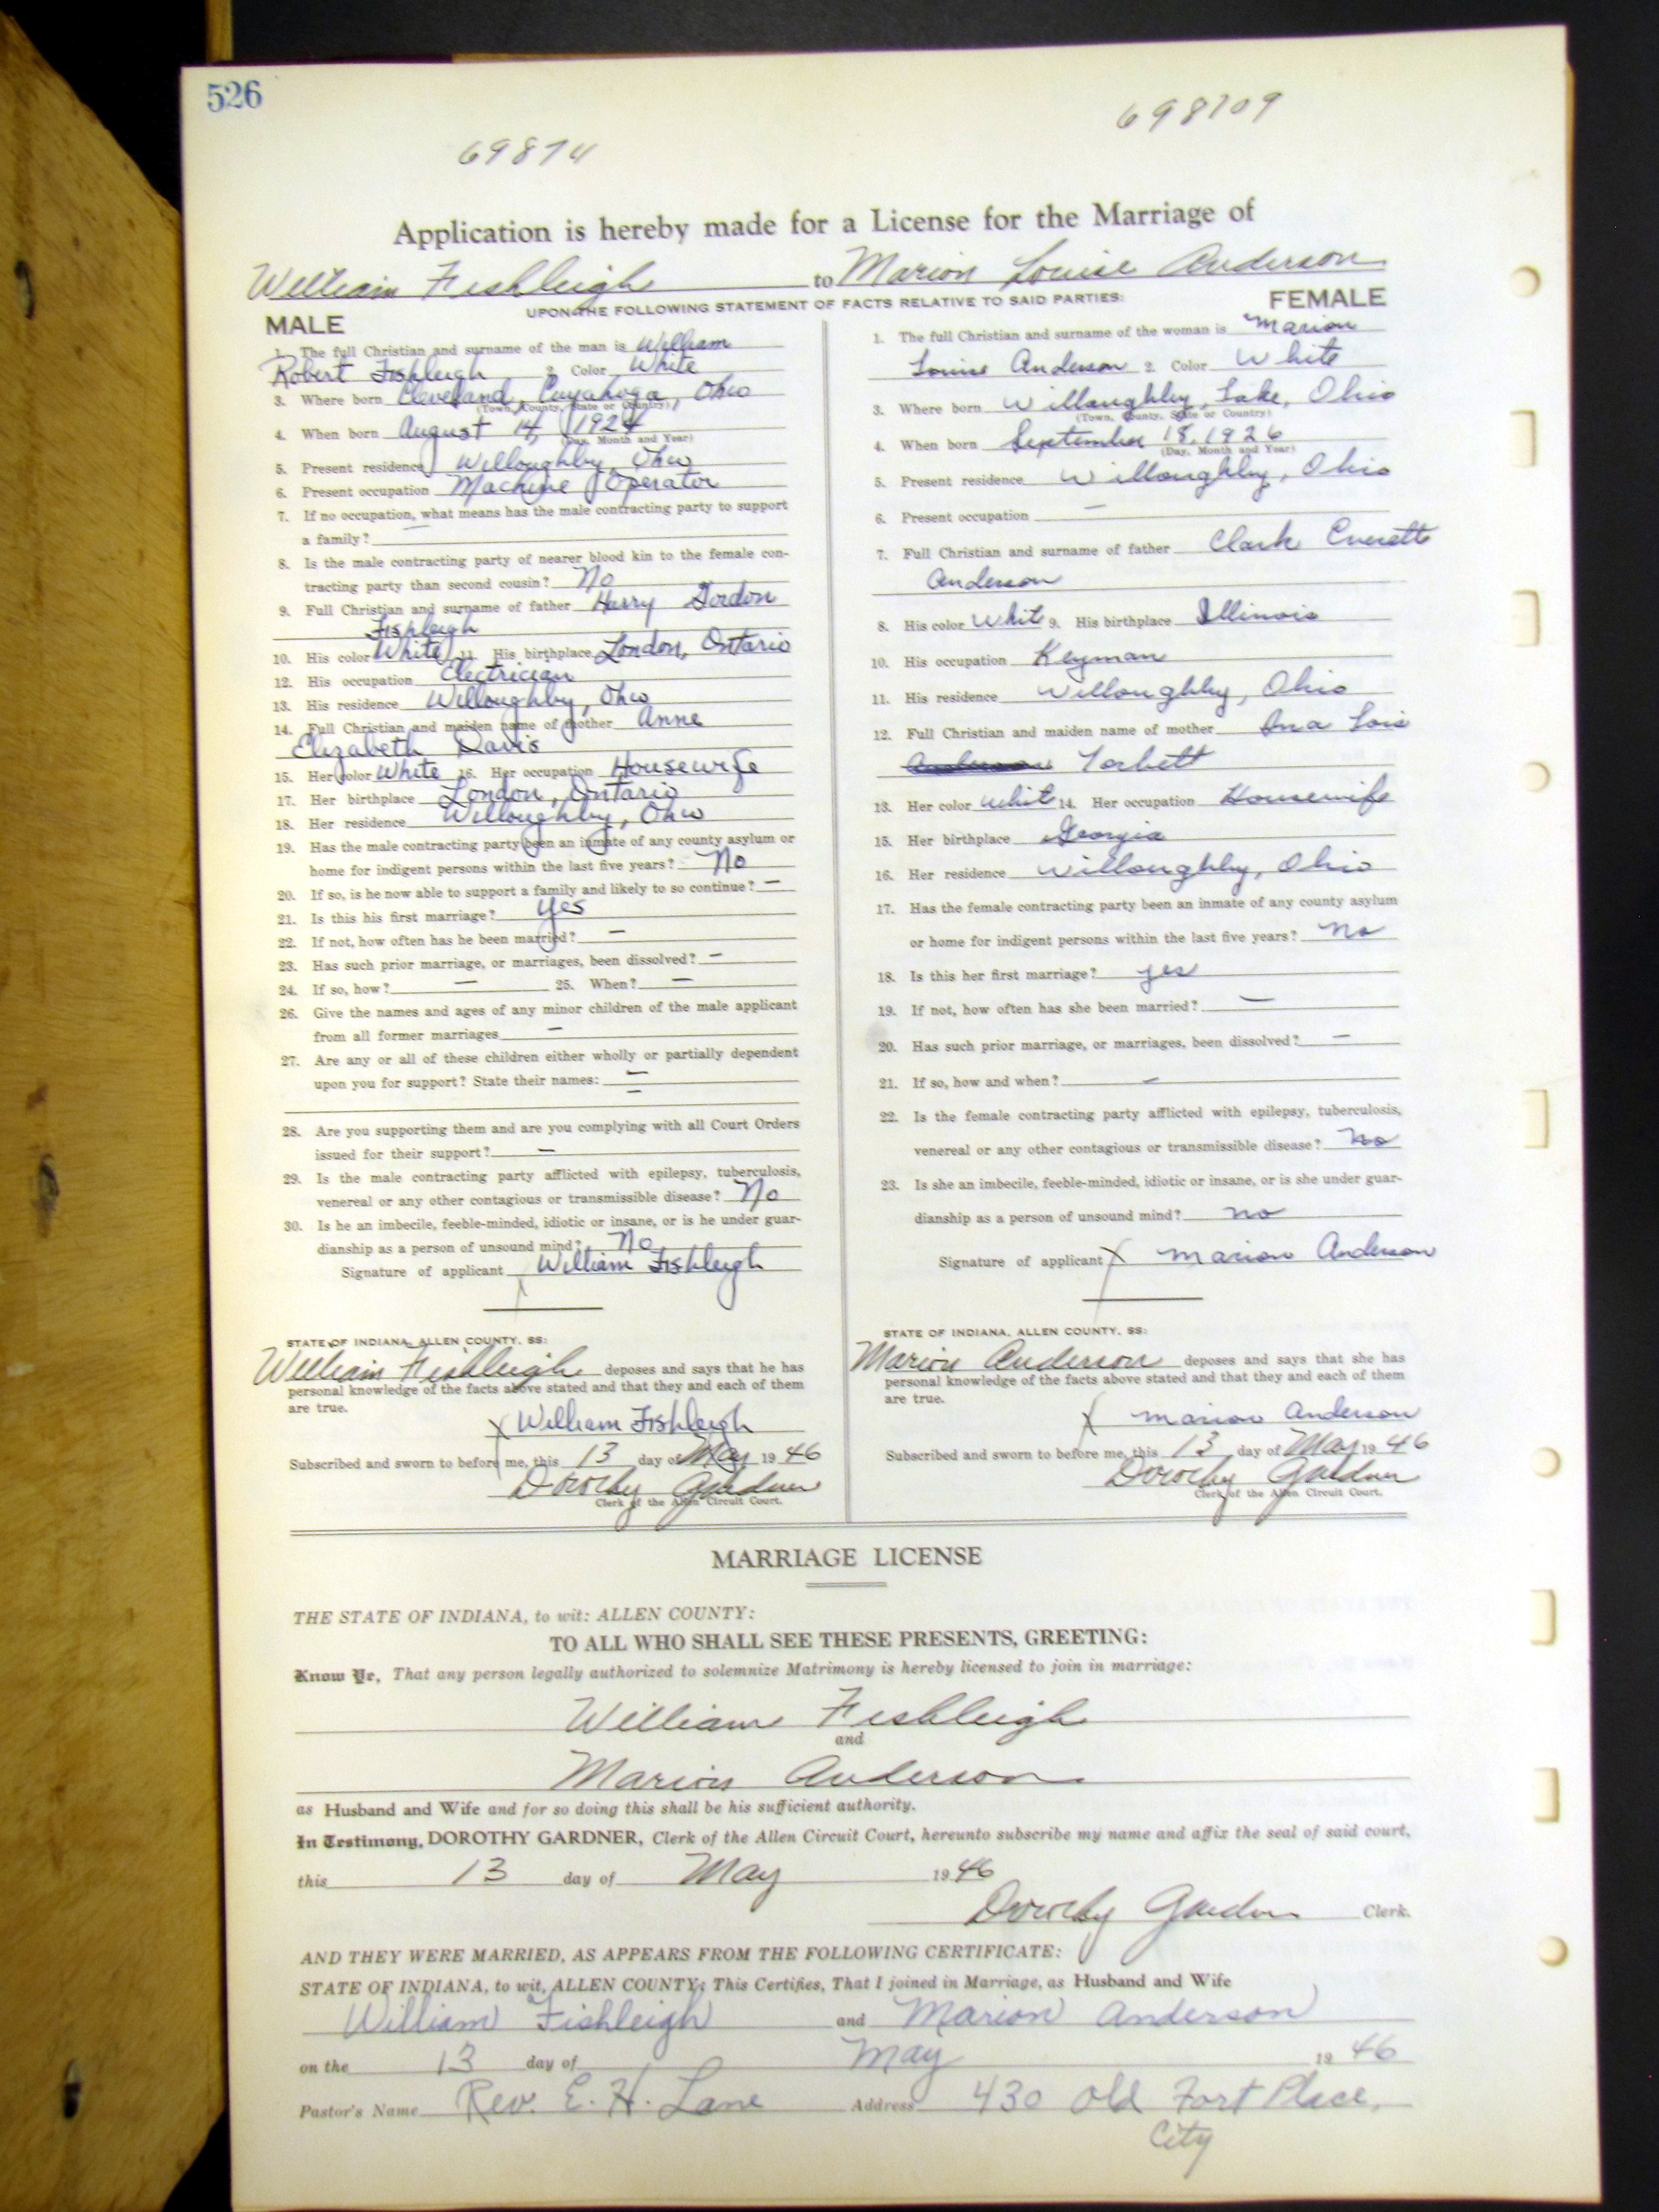 526
69874
698709
Application is hereby made for a License for the Marriage of
William Fishleigh to Marion Louise Anderson
UPON THE FOLLOWING STATEMENT OF FACTS RELATIVE TO SAID PARTIES:
MALE
1. The full Christian and surname of the man is William
Robert Fishleigh 2. Color White
3. Where born Cleveland, Cuyahoga, Ohio
(Town, County, State or Country)
4. When born August 14, 1924
(Day, Month and Year)
5. Present residence Willoughby, Ohio
6. Present occupation Machine Operator
7. If no occupation, what means has the male contracting party to support
a family? —
8. Is the male contracting party of nearer blood kin to the female con-
tracting party than second cousin? No
9. Full Christian and surname of father Harry Gordon
Fishleigh
10. His color White 11. His birthplace London, Ontario
12. His occupation Electrician
13. His residence Willoughby, Ohio
14. Full Christian and maiden name of mother Anne
Elizabeth Davis
15. Her color White 16. Her occupation Housewife
17. Her birthplace London, Ontario
18. Her residence Willoughby, Ohio
19. Has the male contracting party been an inmate of any county asylum or
home for indigent persons within the last five years? No
20. If so, is he now able to support a family and likely to so continue? —
21. Is this his first marriage? yes
22. If not, how often has he been married? —
23. Has such prior marriage, or marriages, been dissolved? —
24. If so, how? — 25. When? —
26. Give the names and ages of any minor children of the male applicant
from all former marriages —
27. Are any or all of these children either wholly or partially dependent
upon you for support? State their names: —
—
28. Are you supporting them and are you complying with all Court Orders
issued for their support? —
29. Is the male contracting party afflicted with epilepsy, tuberculosis,
venereal or any other contagious or transmissible disease? No
30. Is he an imbecile, feeble-minded, idiotic or insane, or is he under guar-
dianship as a person of unsound mind? No
Signature of applicant William Fishleigh
STATE OF INDIANA, ALLEN COUNTY, SS:
William Fishleigh deposes and says that he has
personal knowledge of the facts above stated and that they and each of them
are true.
X William Fishleigh
Subscribed and sworn to before me, this 13 day of May 1946
Dorothy Gardner
Clerk of the Allen Circuit Court.
FEMALE
1. The full Christian and surname of the woman is Marion
Louise Anderson 2. Color White
3. Where born Willoughby, Lake, Ohio
(Town, County, State or Country)
4. When born September 18, 1926
(Day, Month and Year)
5. Present residence Willoughby, Ohio
6. Present occupation —
7. Full Christian and surname of father Clark Everette
Anderson
8. His color Whit 9. His birthplace Illinois
10. His occupation Keyman
11. His residence Willoughby, Ohio
12. Full Christian and maiden name of mother Ina Lois
Anderson Torbett
13. Her color Whit 14. Her occupation Housewife
15. Her birthplace Georgia
16. Her residence Willoughby, Ohio
17. Has the female contracting party been an inmate of any county asylum
or home for indigent persons within the last five years? no
18. Is this her first marriage? yes
19. If not, how often has she been married? —
20. Has such prior marriage, or marriages, been dissolved? —
21. If so, how and when? —
22. Is the female contracting party afflicted with epilepsy, tuberculosis,
venereal or any other contagious or transmissible disease? no
23. Is she an imbecile, feeble-minded, idiotic or insane, or is she under guar-
dianship as a person of unsound mind? no
Signature of applicant X Marion Anderson
STATE OF INDIANA, ALLEN COUNTY, SS:
Marion Anderson deposes and says that she has
personal knowledge of the facts above stated and that they and each of them
are true.
X Marion Anderson
Subscribed and sworn to before me, this 13 day of May 1946
Dorothy Gardner
Clerk of the Allen Circuit Court.
MARRIAGE LICENSE
THE STATE OF INDIANA, to wit: ALLEN COUNTY:
TO ALL WHO SHALL SEE THESE PRESENTS, GREETING:
Know Ye, That any person legally authorized to solemnize Matrimony is hereby licensed to join in marriage:
William Fishleigh
and
Marion Anderson
as Husband and Wife and for so doing this shall be his sufficient authority.
In Testimony, DOROTHY GARDNER, Clerk of the Allen Circuit Court, hereunto subscribe my name and affix the seal of said court,
this 13 day of May 1946
Dorothy Gardner Clerk.
AND THEY WERE MARRIED, AS APPEARS FROM THE FOLLOWING CERTIFICATE:
STATE OF INDIANA, to wit, ALLEN COUNTY: This Certifies, That I joined in Marriage, as Husband and Wife
William Fishleigh and Marion Anderson
on the 13 day of May 1946
Pastor's Name Rev. E. H. Lane Address 430 Old Fort Place,
City